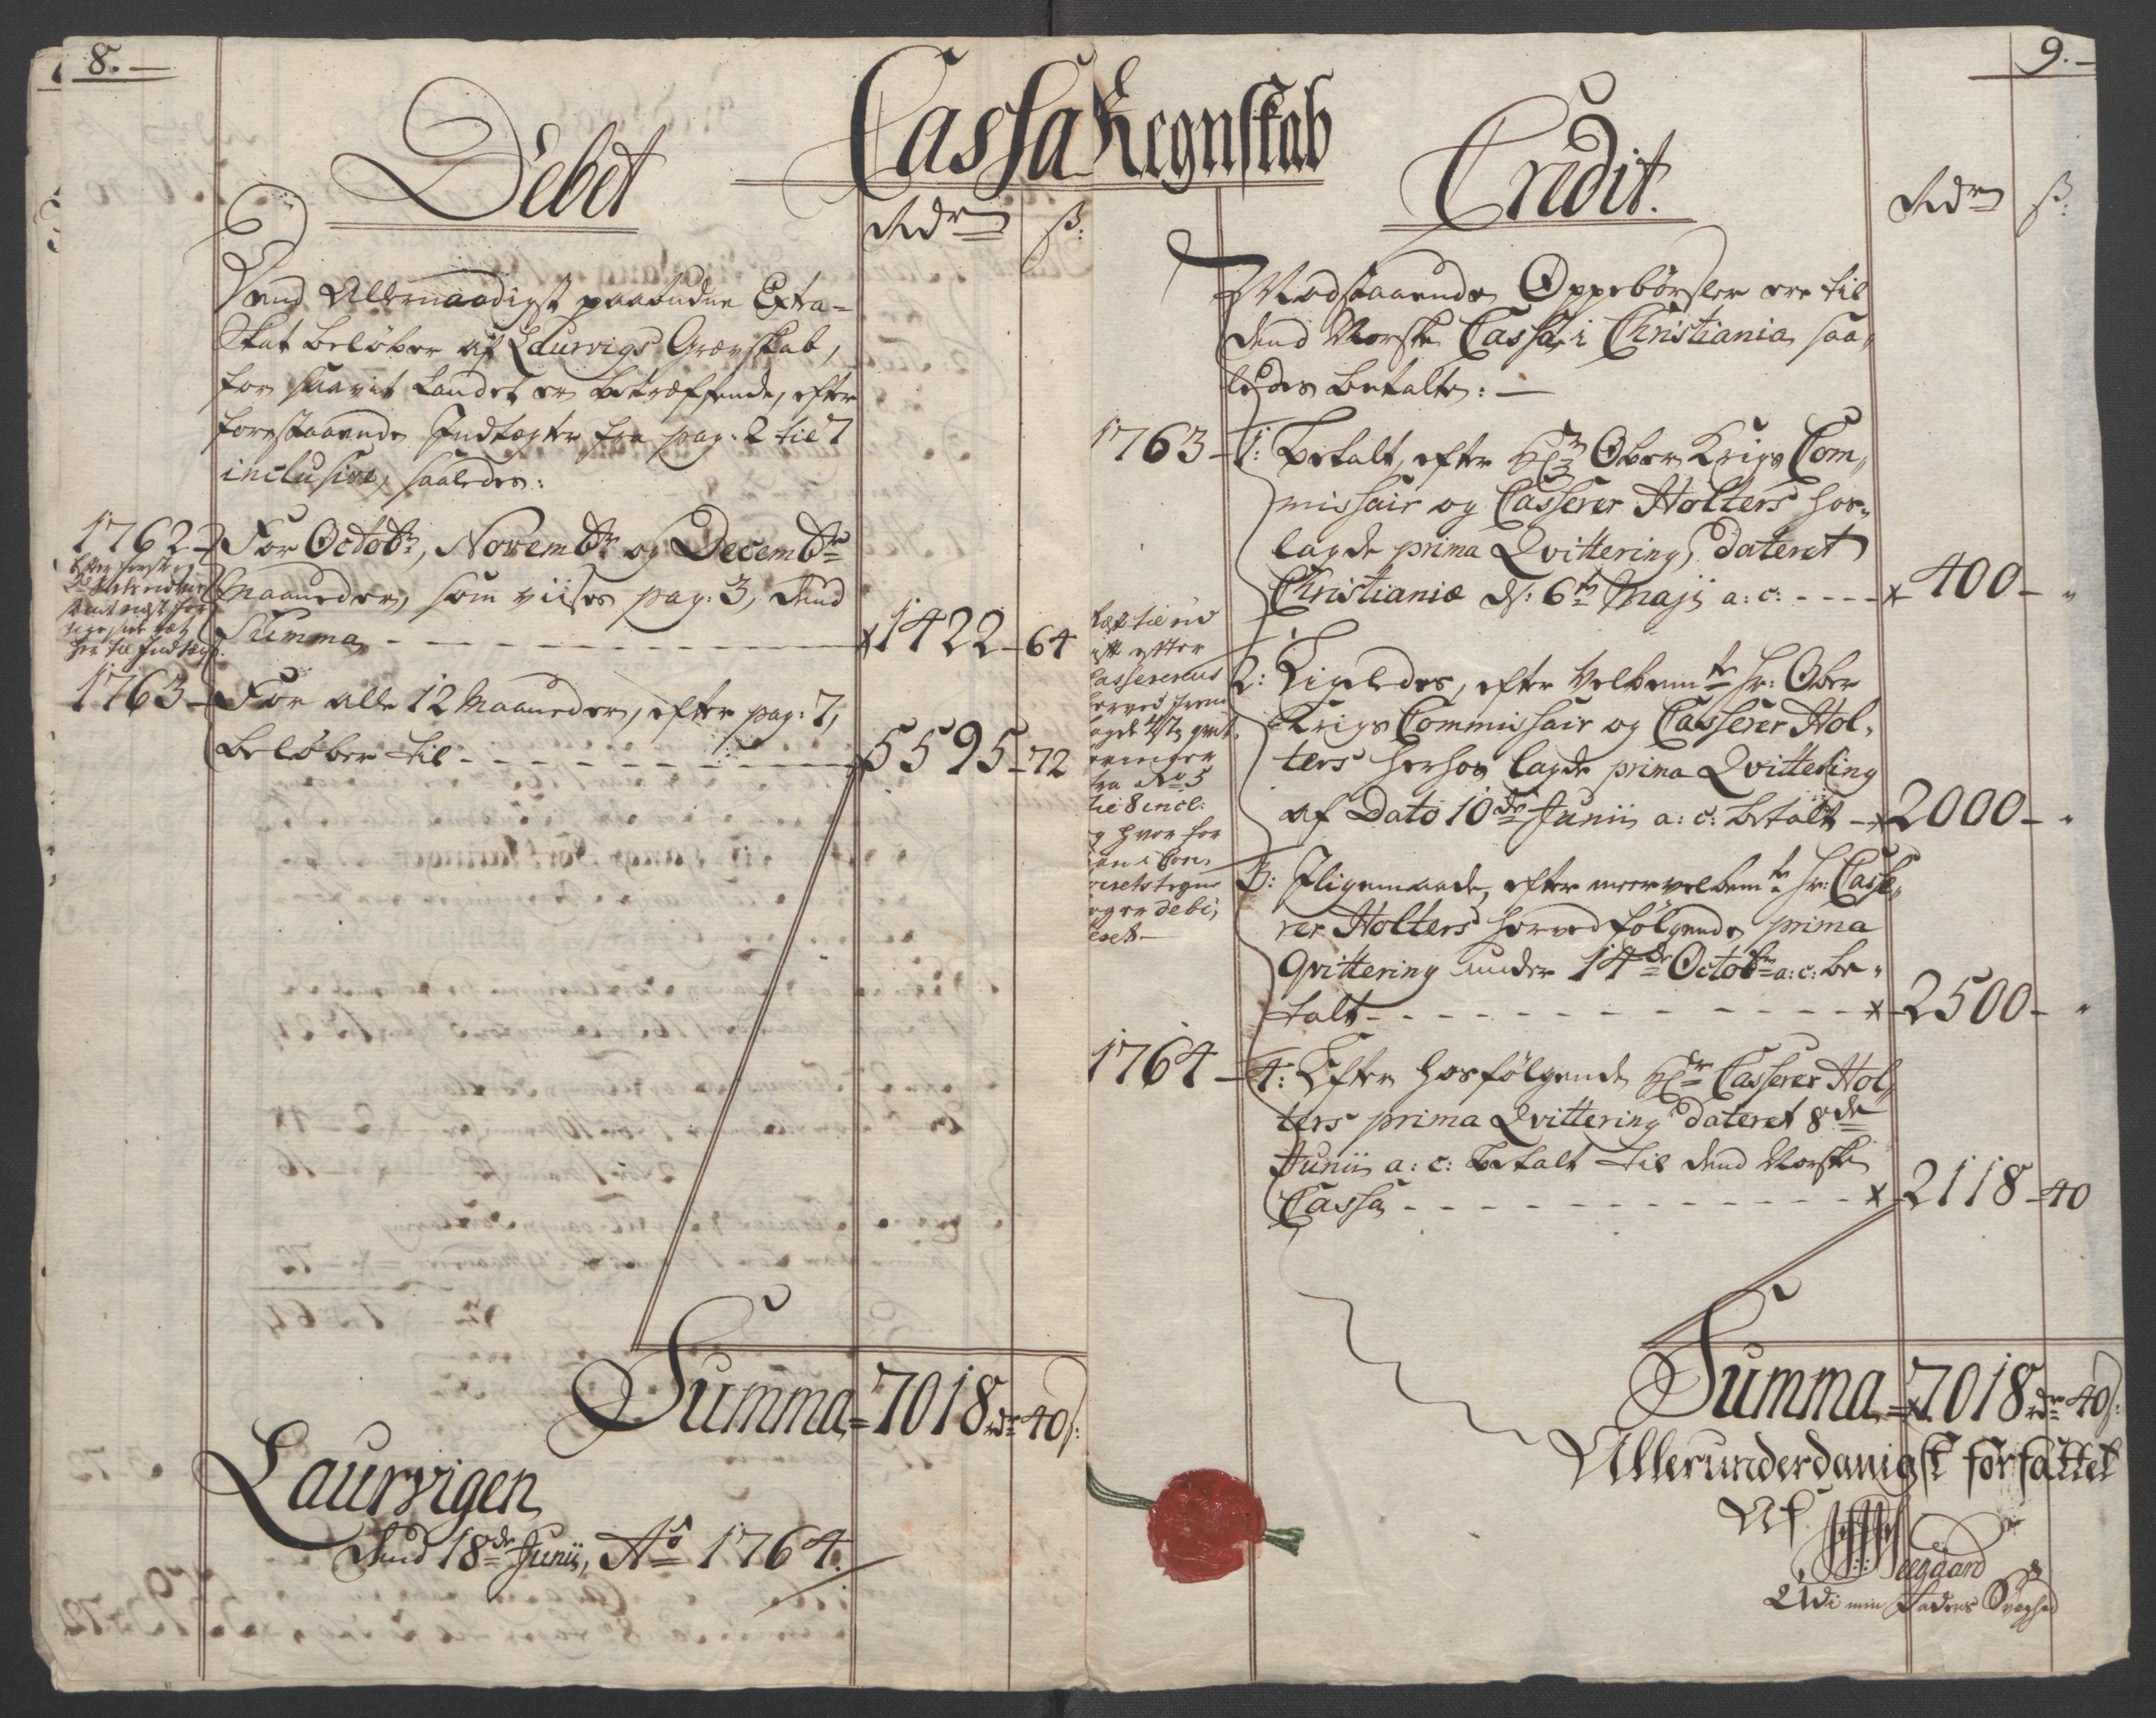 8.
9.
Cassa Regnskab
Debet
Rdr ß:
Dend Allernaadigst paabudne Extra-
Skat beløber af Laurvigs Grevskab,
for saavit Landet er betræffende, efter
forestaaende Indtægter fra pag: 2 til 7
inclusive, saaledes:
1762 - For Octobr, Novembr og Decembr
Maaneder, som viises pag: 3, dend
Summa - 1422 - 64
her til Indtægt.
1763 - For alle 12 Maaneder, efter pag: 7,
beløber til - 5595 - 72
Summa = 7018 rdr 40 s:
Laurvigen
dend 18de Junii, Ao 1764.
Credit.
Rdr ß:
Modstaaende Oppebørsler ere til
dend Norske Cassa i Christiania saa,,
ledes betalte: —
1763 - 1: Betalt, efter Hr Ober Krigs Com,,
missair og Casserer Holters hos,,
lagde prima Qvittering, dateret
Christianiæ d: 6te Maji a: c: - 400 - "
2: Ligeledes, efter Velbemte Hr: Ober
Krigs Commissair og Casserer Hol,,
ters herhos lagde prima Qvittering
af Dato 10de Junii a: c: betalt - 2000 - "
3: Iligemaade, efter meervelbemte Hr: Casse,,
rer Holters herved følgende prima
Qvittering under 14de Octobr a: c: be,,
talt - 2500 - "
til 8 incl:
1764 - 4: Efter hosfølgende Hr Casserer Hol,,
ters prima Qvittering dateret 8de
Junii a: c: betalt til dend Norske
Cassa - 2118 - 40
Summa = 7018 rdr 40 s:
Allerunderdanigst forfattet
Af
Seegaard
Udi min Faders Svaghed